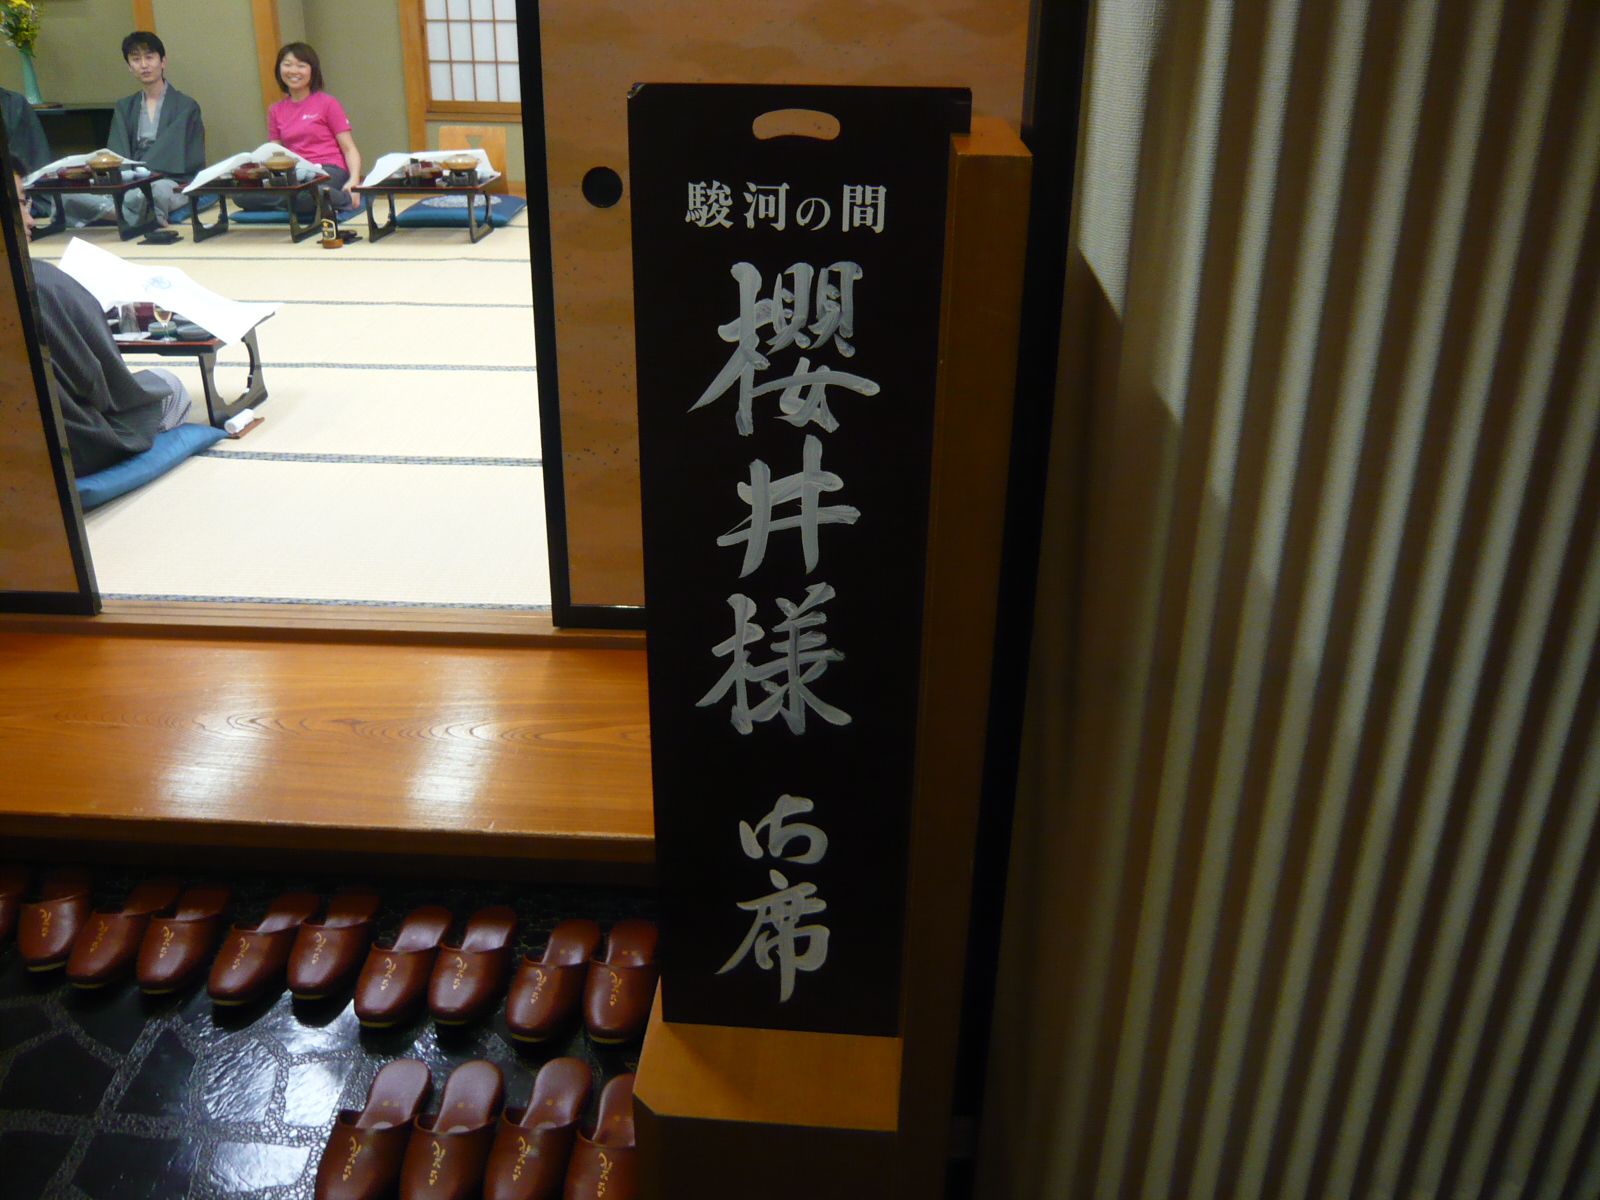 駿河の間
櫻井様
御席